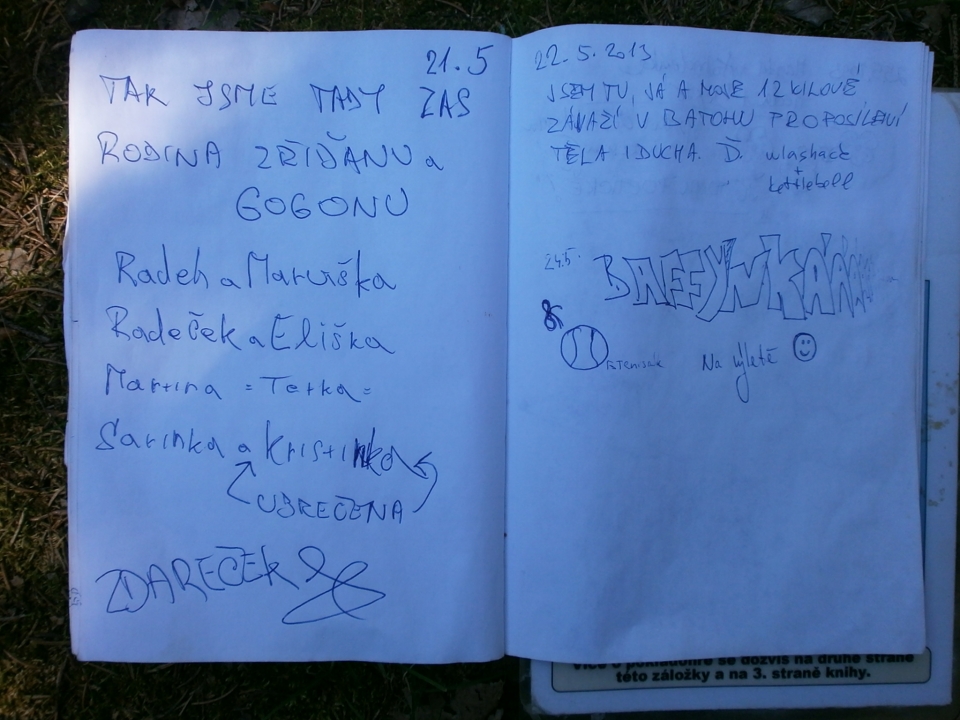 21.5
TAK JSME TADY ZAS
RODINA ZŘIĎANU a
GOGONU
Radek a Maruška
Radeček a Eliška
Martina = Tetka =
Sarinka a Kristinka
UBREČENA
ZDAREČEK
22.5.2013
JSEM TU, JÁ A MOJE 12 KILOVÉ
ZÁVAŽÍ V BATOHU PRO POSÍLENÍ
TĚLA I DUCHA. Ď. wlashack
+
kettlebell
24.5.
BAFFYNKÁÁÁ
Na výletě
Více o pokladohře se dozvíš na druhé straně
této záložky a na 3. straně knihy.